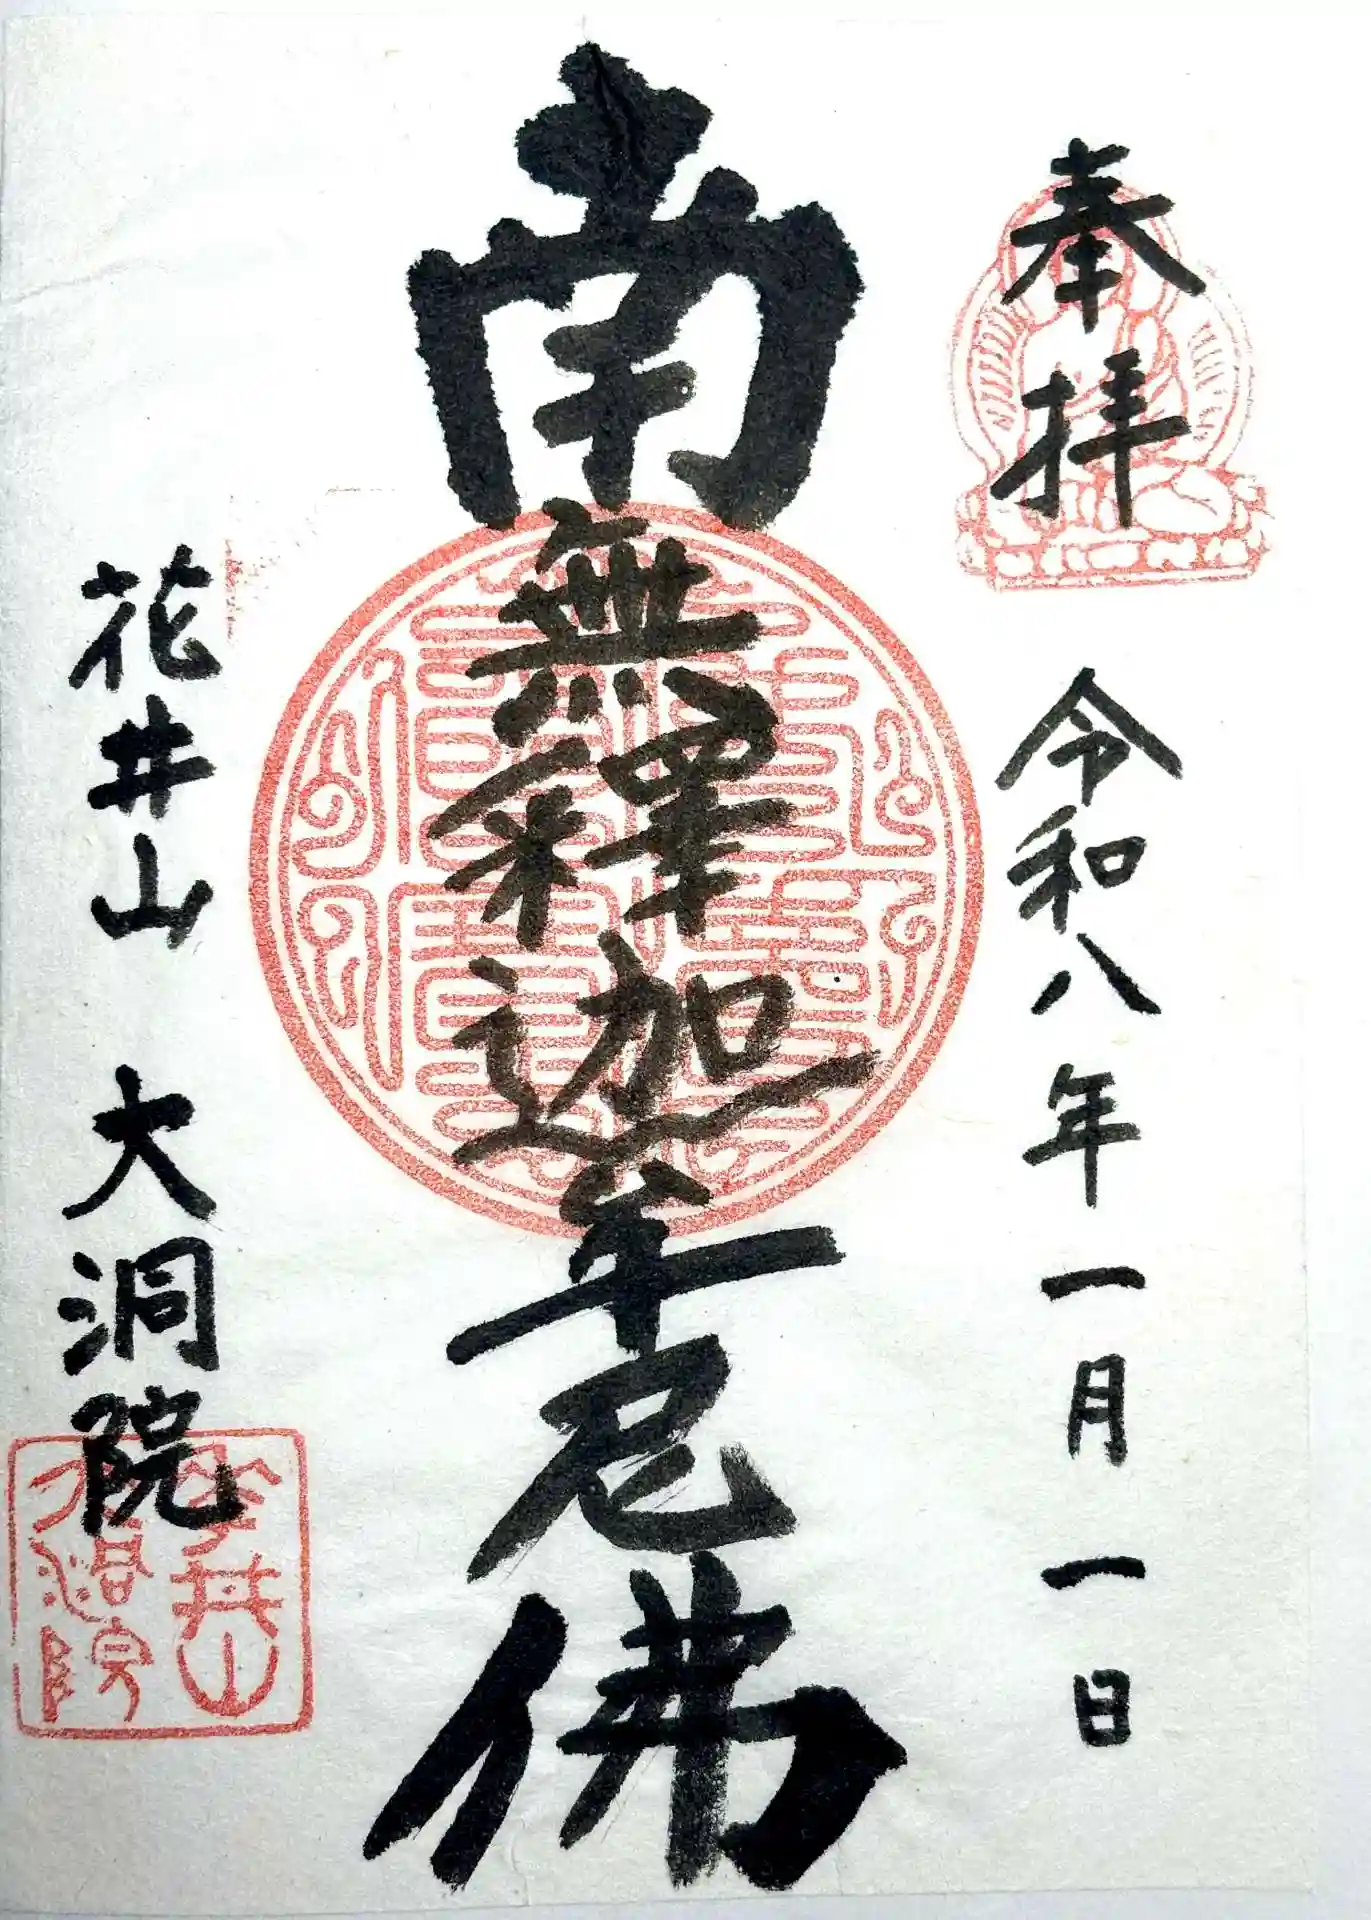 奉拝
令和八年一月一日
南無釋迦牟尼佛
花井山 大洞院